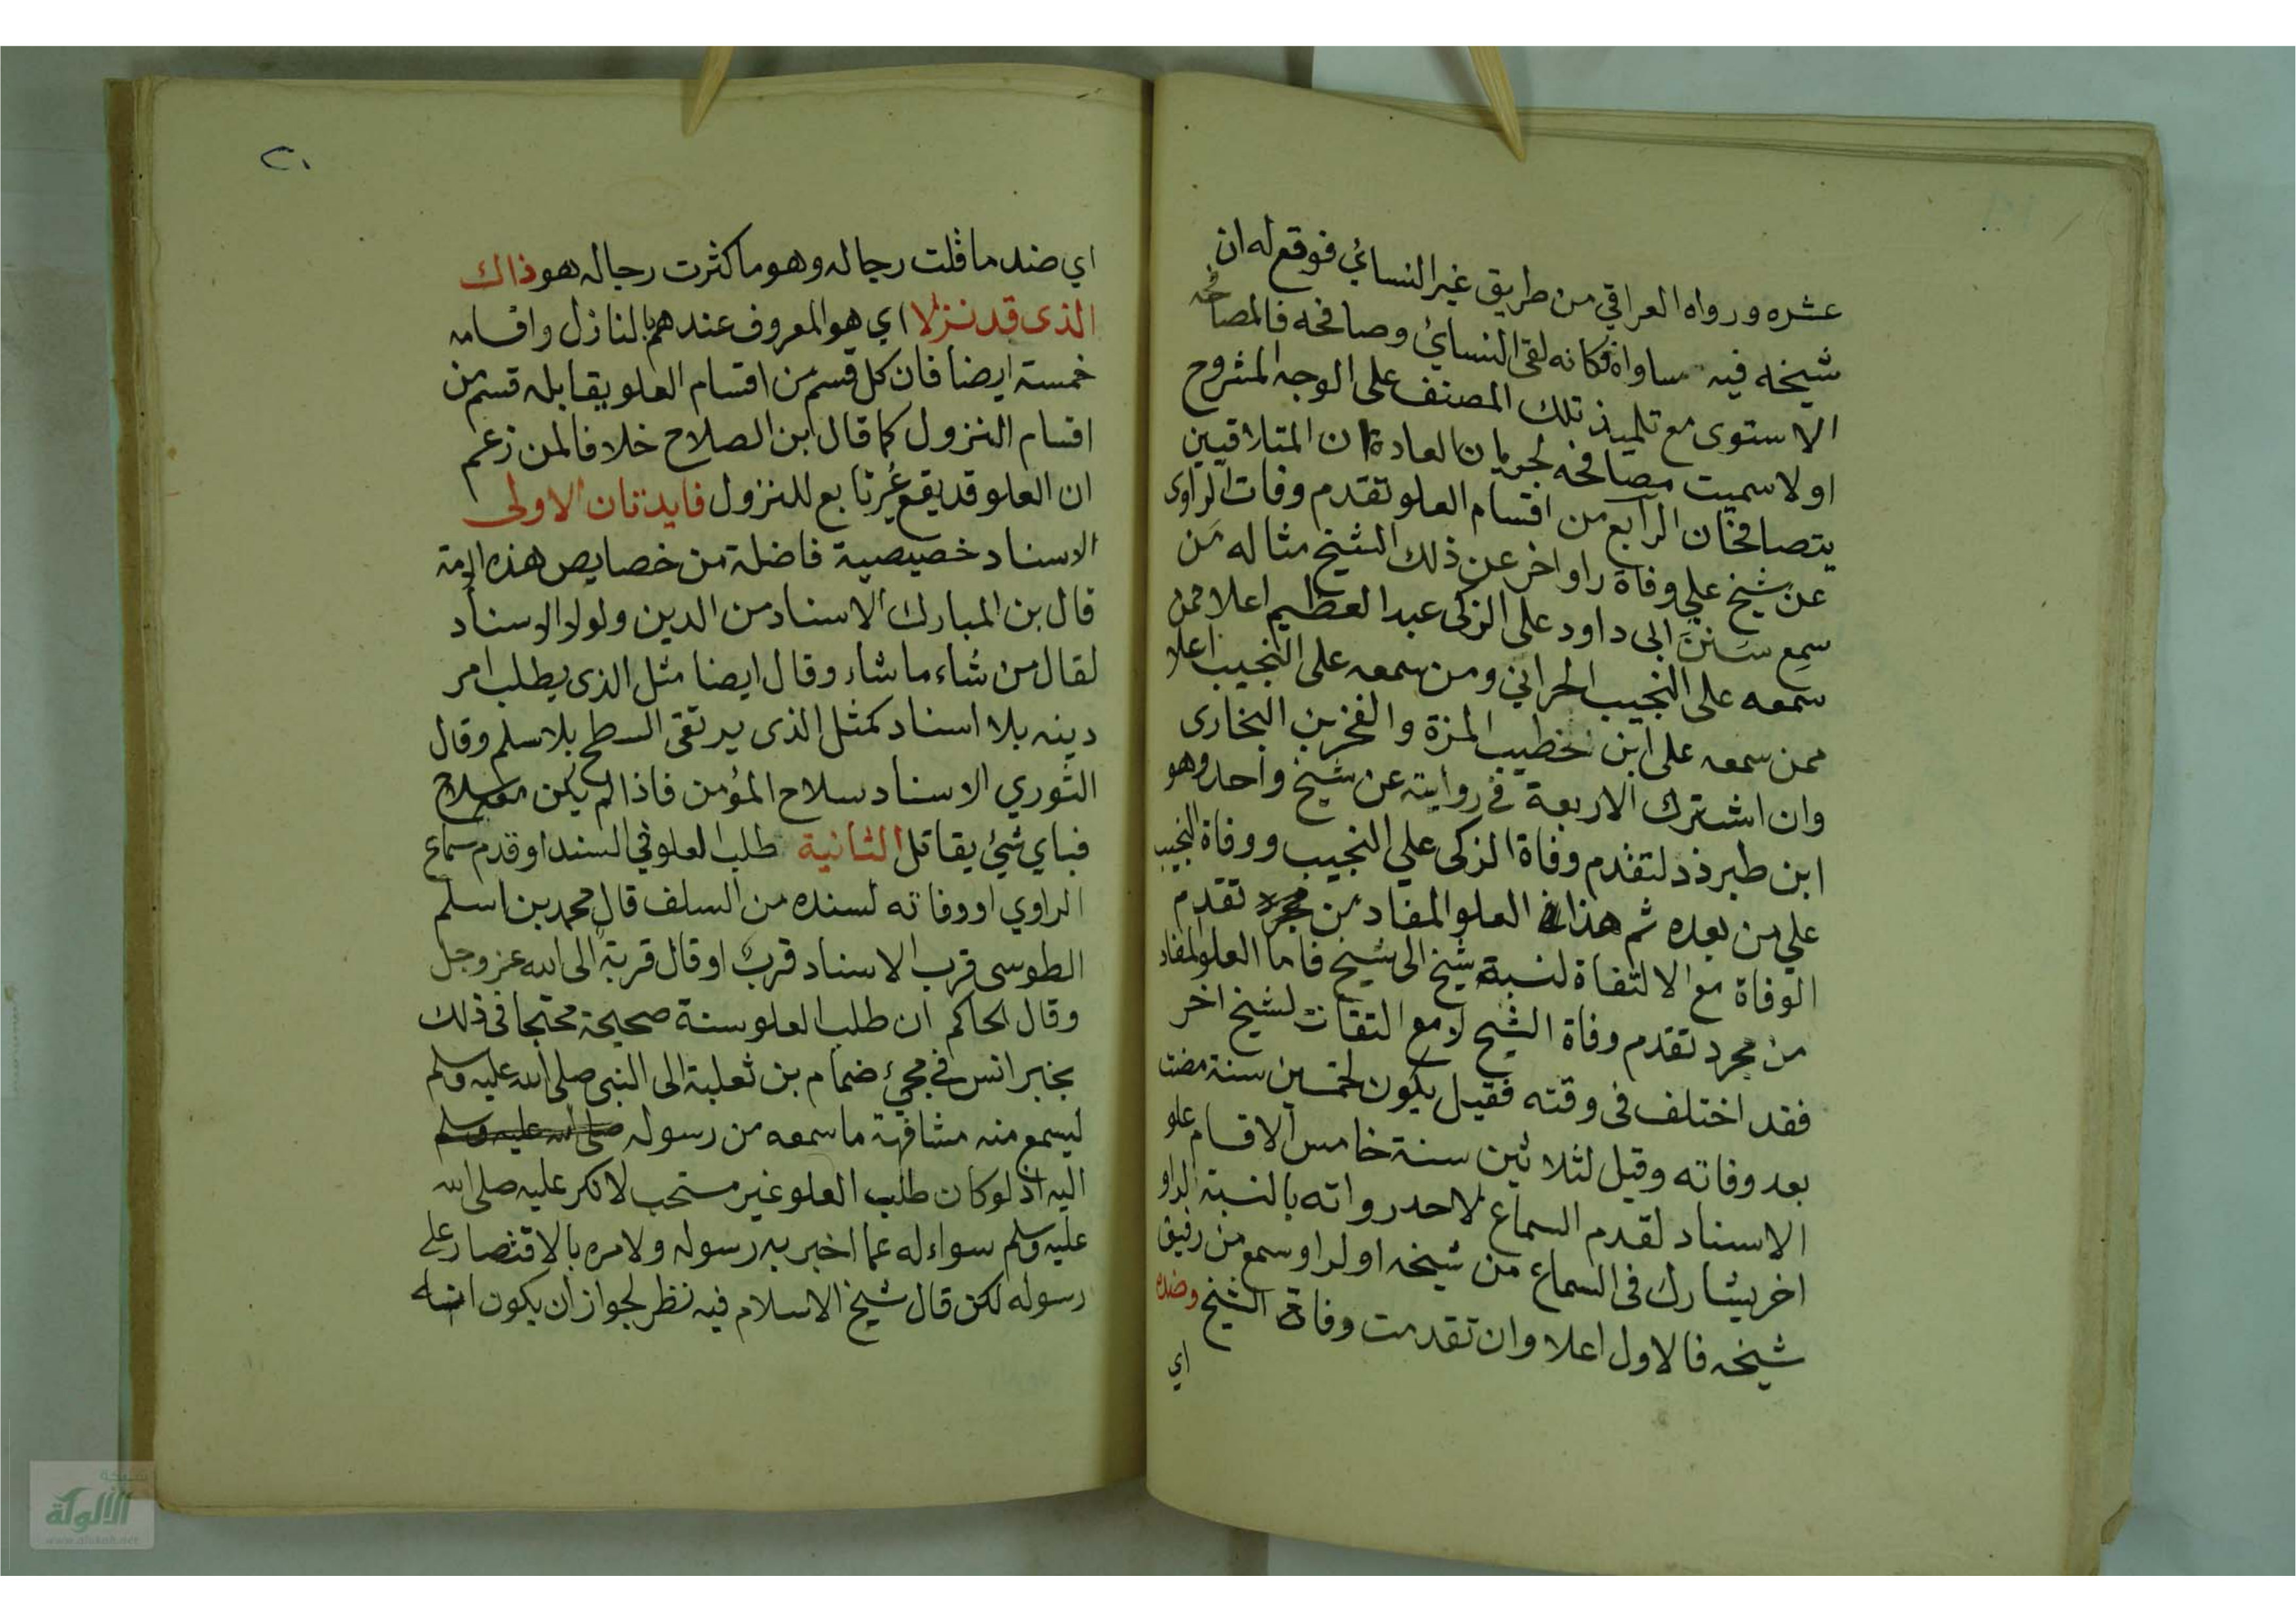 عشره ورواه العراقي من طريق غير النسائي فوقع له ان
شيخه فيه مساواة فكانه لقى النسائي وصافحه فالمصافحه
الاستوى مع تلميذ تلك المصنف على الوجه المشروح
اولا سميت مصافحه لجريان العادة ان المتلاقيين
يتصافحان الرابع من اقسام العلو تقدم وفات الراوى
عن شيخ علي وفاة راو اخر عن ذلك الشيخ مثاله من
سمع سنن ابى داود على الزكى عبد العظيم اعلا ممن
سمعه على النجيب الحراني ومن سمعه على النجيب اعلا
ممن سمعه على ابن خطيب المزة والفخر بن البخارى
وان اشترك الاربعة في روايته عن شيخ واحد وهو
ابن طبرذد لتقدم وفاة الزكى علي النجيب ووفاة النجيب
علي من بعده ثم هذا في العلو المفاد من مجرد تقدم
الوفاة مع الالتفاة لنسبة شيخ الى شيخ فاما العلو المفاد
من مجرد تقدم وفاة الشيخ لا مع التفات لشيخ اخر
فقد اختلف فى وقته فقيل يكون لخمسين سنة مضت
بعد وفاته وقيل لثلاثين سنة خامس الاقسام علو
الاسناد لقدم السماع لاحد رواته بالنسبة لراو
اخر يشارك فى السماع من شيخه او لراو سمع من رفيق
شيخه فالاول اعلا وان تقدمت وفاة الشيخ وضده
اي
٢٠
اي ضد ما قلت رجاله وهو ما كثرت رجاله هو ذاك
الذى قد نزلا اي هو المعروف عندهم بالنازل واقسامه
خمسة ايضا فان كل قسم من اقسام العلو يقابله قسم من
اقسام النزول كما قال ابن الصلاح خلافا لمن زعم
ان العلو قد يقع غير تابع للنزول فايدتان الاولى
الاسناد خصيصية فاضلة من خصايص هذه الامة
قال بن المبارك الاسناد من الدين ولولا الاسناد
لقال من شاء ما شاء وقال ايضا مثل الذى يطلب امر
دينه بلا اسناد كمثل الذى يرتقى السطح بلا سلم وقال
الثوري الاسناد سلاح المؤمن فاذا لم يكن معه سلاح
فباي شيئ يقاتل الثانية طلب العلو في السند او قدم سماع
الراوي او وفاته لسنده من السلف قال محمد بن اسلم
الطوسى قرب الاسناد قرب او قال قربة الى الله عز وجل
وقال الحاكم ان طلب العلو سنة صحيحة محتجا فى ذلك
بخبر انس في مجئ ضمام بن ثعلبة الى النبى صلى الله عليه وسلم
ليسمع منه مشافهة ما سمعه من رسوله صلى الله عليه وسلم
اليه اذ لو كان طلب العلو غير مستحب لانكر عليه صلى الله
عليه وسلم سواءله عما اخبر به رسوله ولامره بالاقتصار على
رسوله لكن قال شيخ الاسلام فيه نظر لجواز ان يكون
شبكة
الألوكة
www.alukah.net